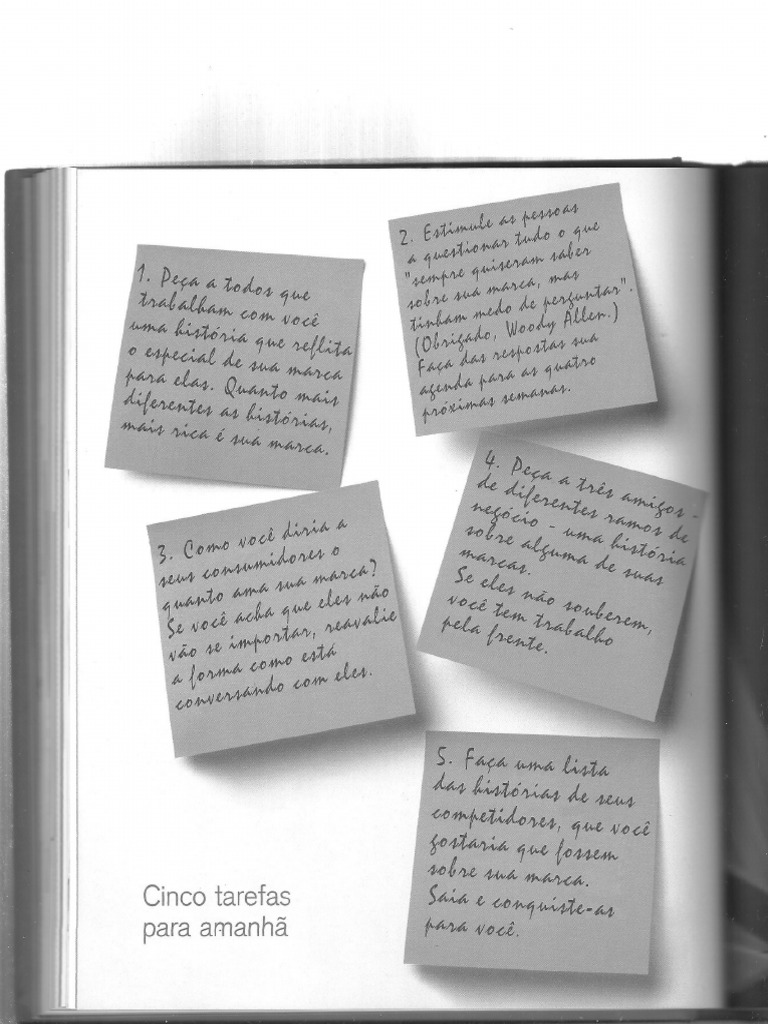 1. Peça a todos que
trabalham com você
uma história que reflita
o especial de sua marca
para elas. Quanto mais
diferentes as histórias,
mais rica é sua marca.
2. Estimule as pessoas
a questionar tudo o que
"sempre quiseram saber
sobre sua marca, mas
tinham medo de perguntar".
(Obrigado, Woody Allen.)
Faça das respostas sua
agenda para as quatro
próximas semanas.
3. Como você diria a
seus consumidores o
quanto ama sua marca?
Se você acha que eles não
vão se importar, reavalie
a forma como está
conversando com eles.
4. Peça a três amigos -
de diferentes ramos de
negócio - uma história
sobre alguma de suas
marcas.
Se eles não souberem,
você tem trabalho
pela frente.
5. Faça uma lista
das histórias de seus
competidores, que você
gostaria que fossem
sobre sua marca.
Saia e conquiste-as
para você.
Cinco tarefas
para amanhã